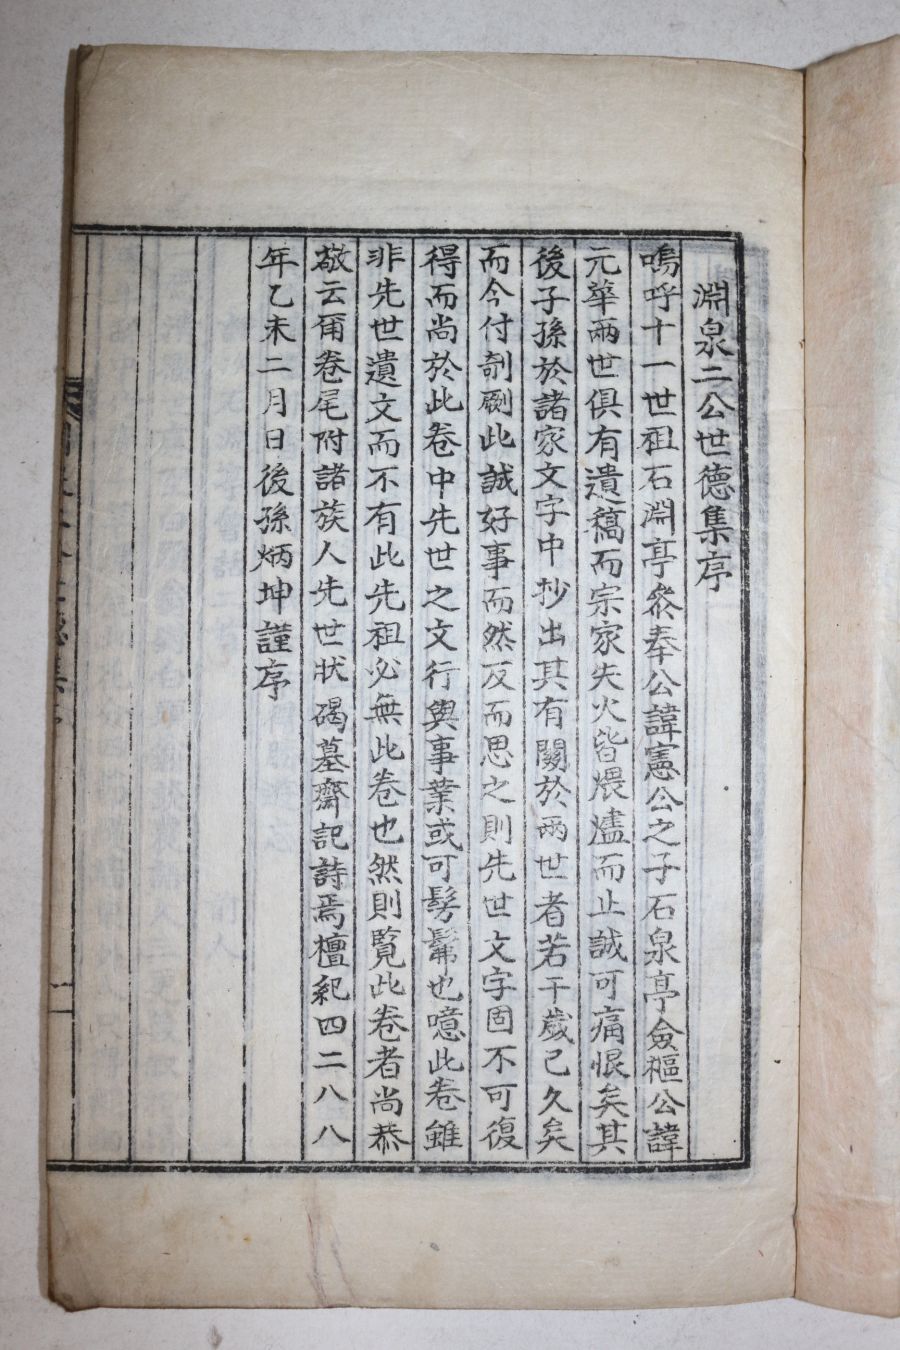 淵泉二公世德集序
嗚呼十一世祖石淵亭參奉公諱憲公之子石泉亭僉樞公諱
元華兩世俱有遺稿而宗家失火皆煨燼而止誠可痛恨矣其
後子孫於諸家文字中抄出其有關於兩世者若干歲已久矣
而今付剞劂此誠好事而然反而思之則先世文字固不可復
得而尚於此卷中先世之文行與事業或可髣髴也噫此卷雖
非先世遺文而不有此先祖必無此卷也然則覽此卷者尚恭
敬云爾卷尾附諸族人先世狀碣墓齋記詩焉檀紀四二八八
年乙未二月日後孫炳坤謹序